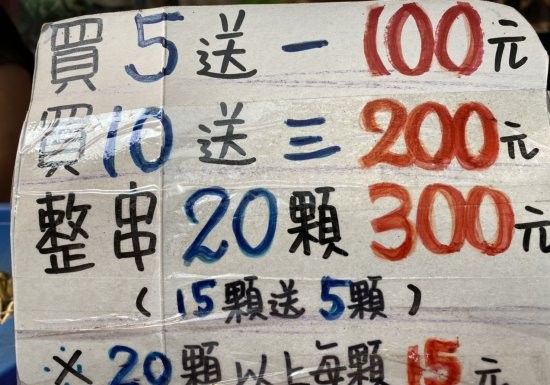 買5送一 100元
買10送三 200元
整串20顆 300元
(15顆送5顆)
※20顆以上每顆15元